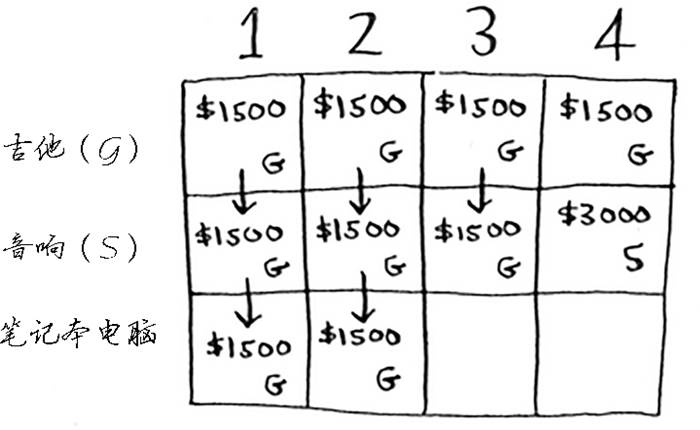 1 2 3 4
吉他(G) $1500 G $1500 G $1500 G $1500 G
音响(S) $1500 G $1500 G $1500 G $3000 S
笔记本电脑 $1500 G $1500 G